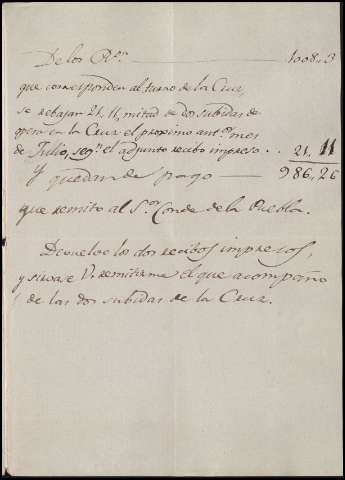 De los R.s 1008,,3
que corresponden al turno de la Cruz,
se rebajan 21,,11, mitad de dos subidas de
opera en la Cruz el proximo ant.or mes
de Julio, seg.n el adjunto recibo impreso . . 21,,11
Y quedan de pago 986,,26
que remito al S.or Conde de la Puebla.
Devuelvo los dos recibos impresos,
y sirvase V. remitirme el que acompaño
de las dos subidas de la Cruz.